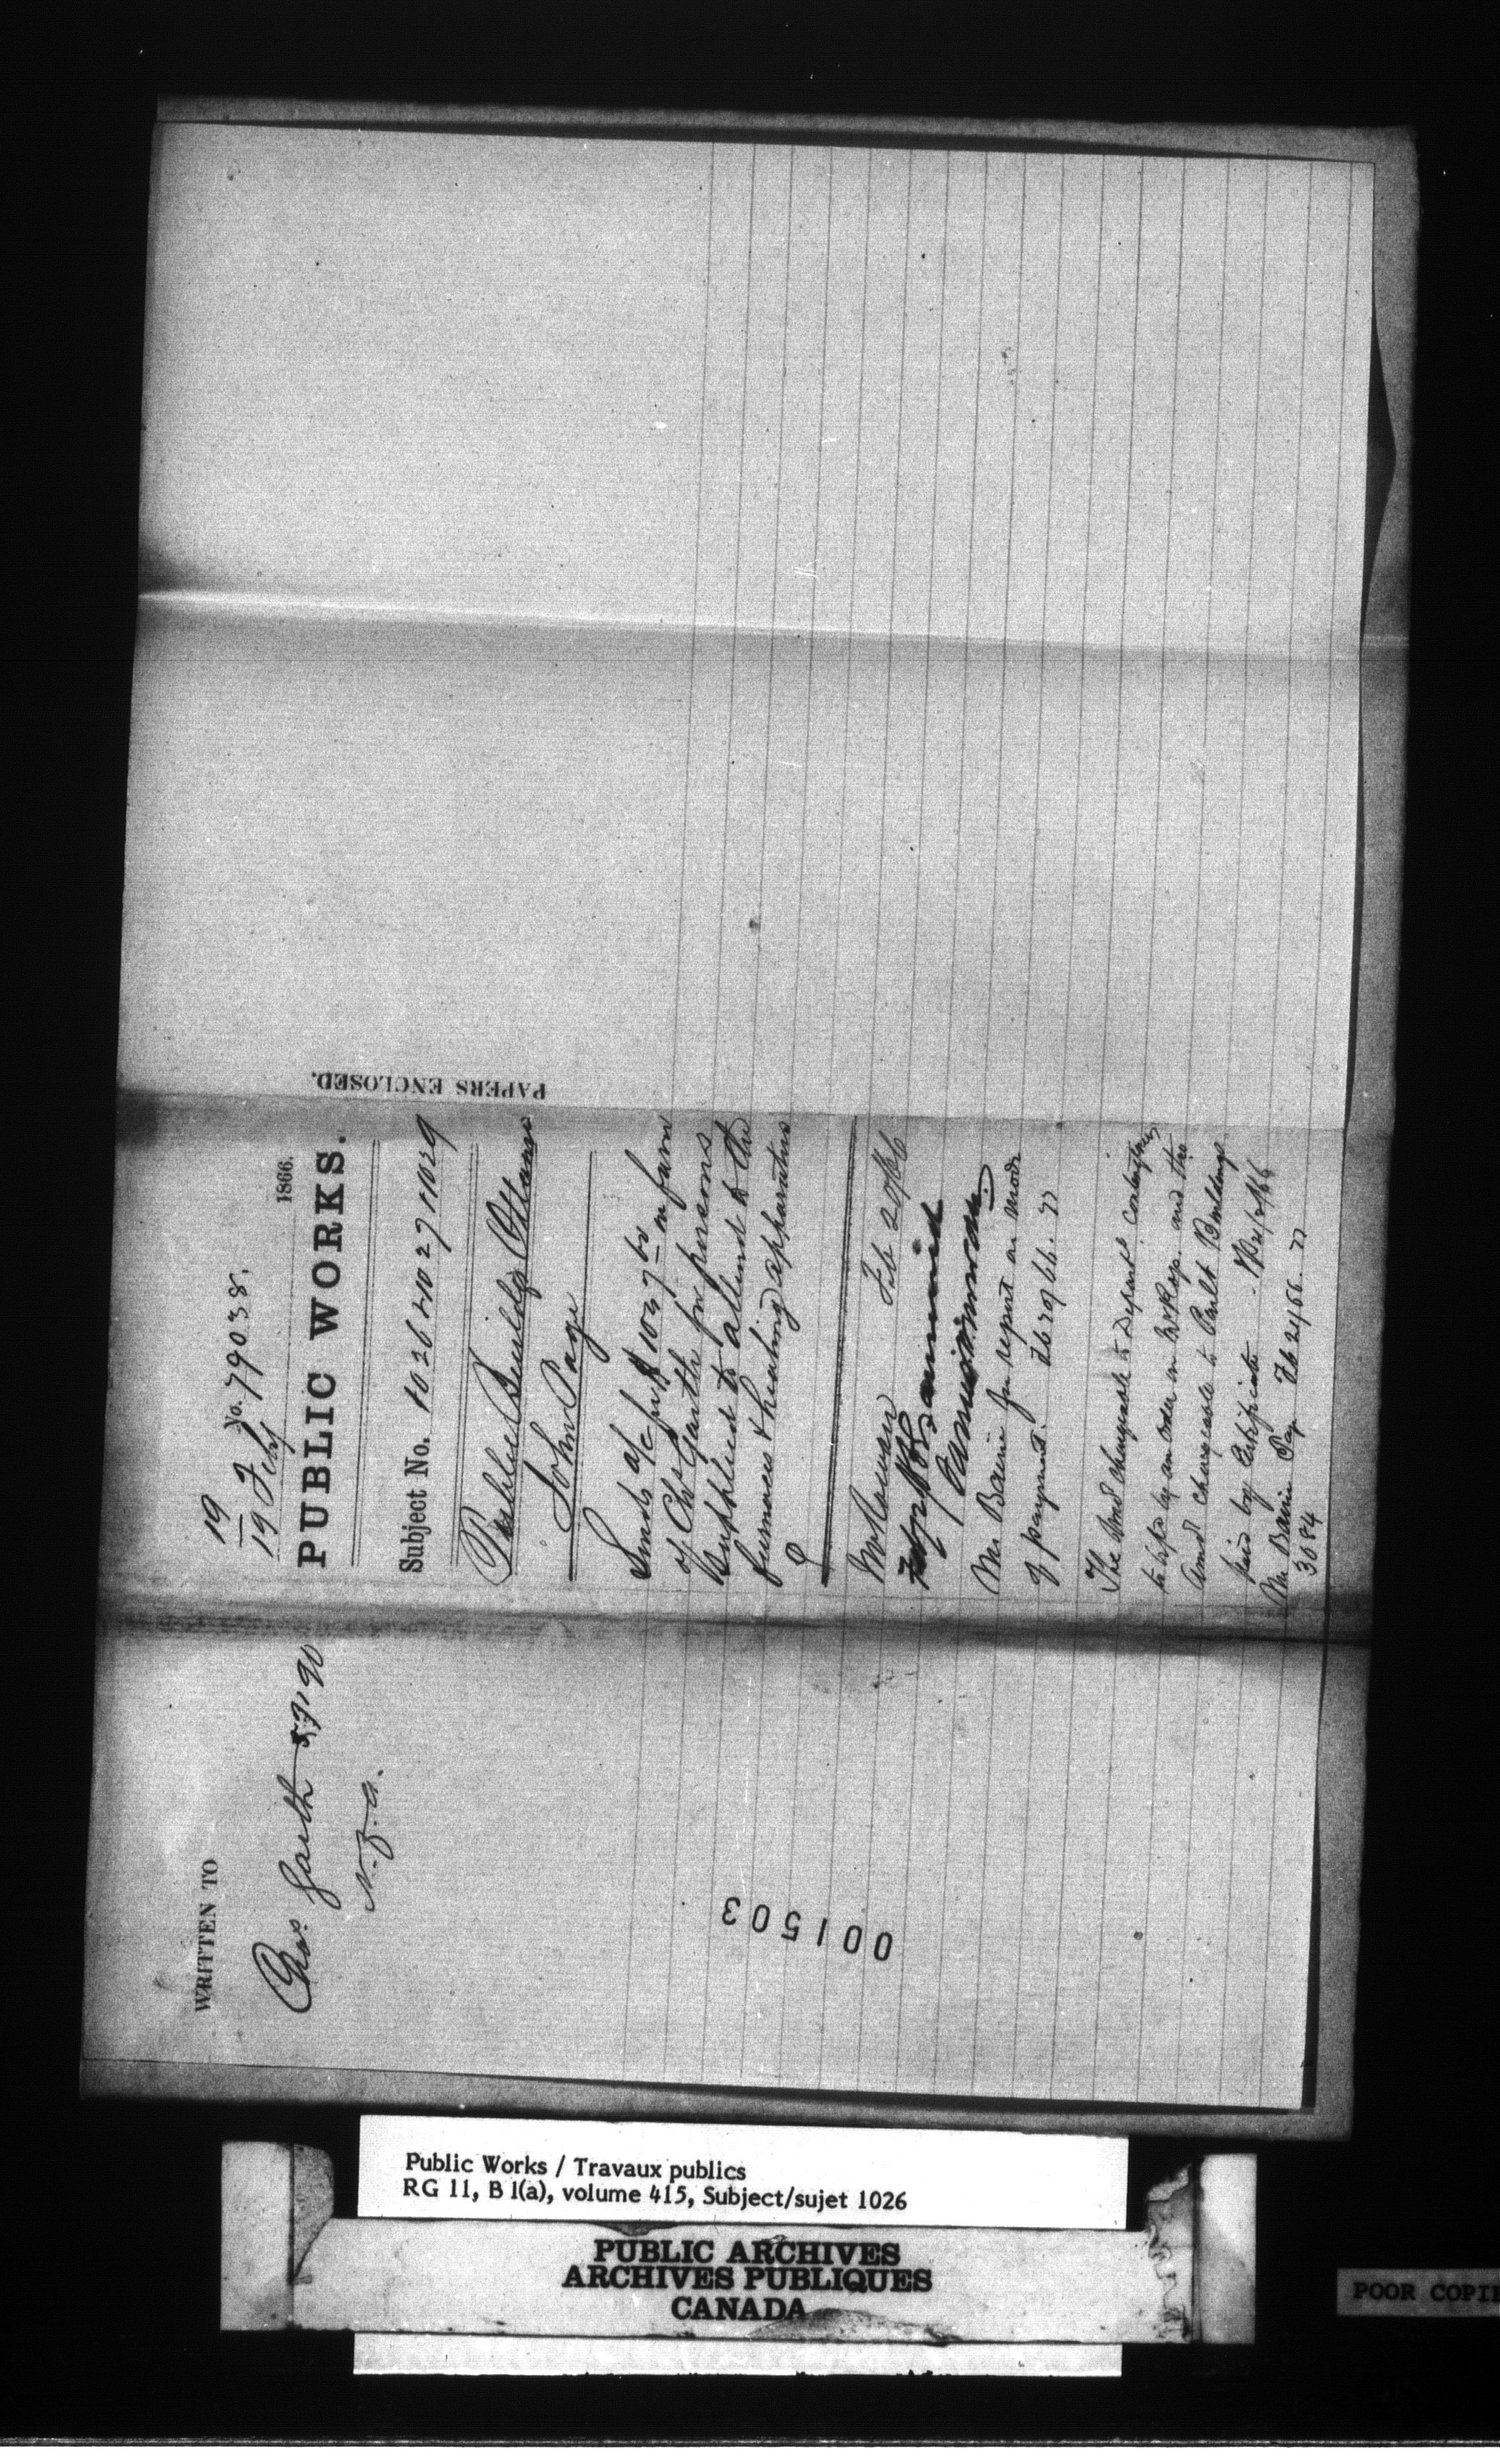 WRITTEN TO
Chas Garth 57190
N.Z.a.
001503
19
No. 79038.
19 Feby 1866.
PUBLIC WORKS.
Subject No. 1026 & 1027 & 1029
Public Buildgs Ottawa
John Page
Sends a/c for $1037 in favr
of Chs Garth for persons
supplied to attend to the
furnaces & heating apparatus
Feb 20/66
Mr Baine for report on mode
of payment. Feb 20/66.
The Amt chargeable to Departl Contingencies
to be pd by an order on and the
Amt chargeable to Parlt Buildings
paid by Certificate
Mr Baine Pay Feb 21/66.
3084
PAPERS ENCLOSED.
Public Works / Travaux publics
RG 11, B 1(a), volume 415, Subject/sujet 1026
PUBLIC ARCHIVES
ARCHIVES PUBLIQUES
CANADA
POOR COPIE